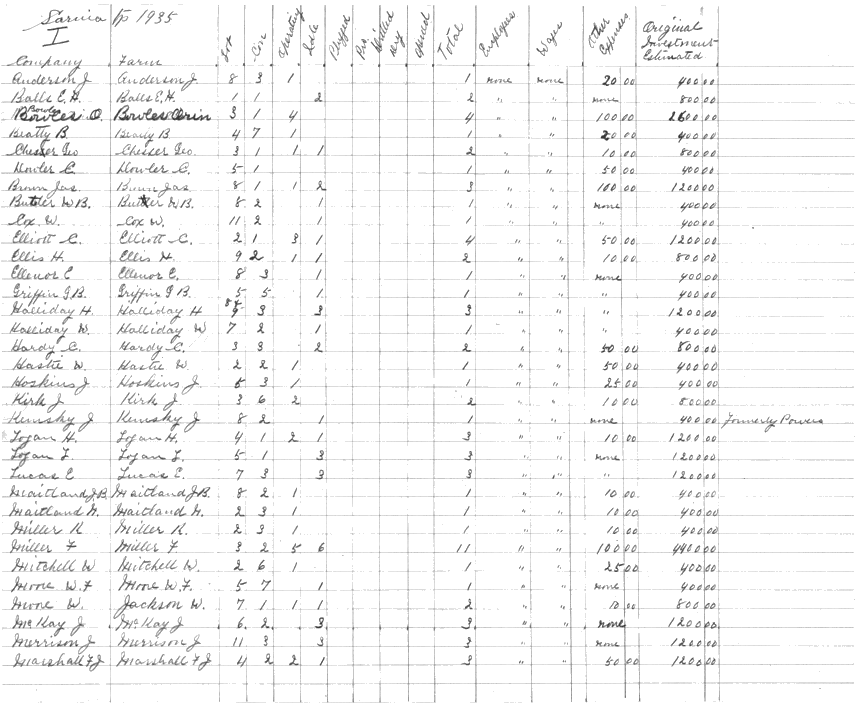 Sarnia Tp 1935
I
Company Farm Lot Con Operating Idle Plugged Dry Total Employees Wages Other Expenses Original Investment Estimated
Anderson J Anderson J 8 3 1 1 none none 20 00 400 00
Balls E.H. Balls E.H. 1 1 2 2 " " none 800 00
Bowles O. Bowles Orin 3 1 4 4 " " 100 00 2600 00
Beatty B. Beatty B 4 7 1 1 " " 20 00 400 00
Chesser Geo Chesser Geo. 3 1 1 1 2 " " 10 00 800 00
Howler C. Howler C. 5 1 1 1 " " 50 00 400 00
Brown Jas Brown Jas 8 1 1 2 3 " " 100 00 1200 00
Butler W B. Butler W B. 8 2 1 1 " " none 400 00
Cox W. Cox W. 11 2 1 1 " " " 400 00
Elliott C. Elliott C. 2 1 3 1 4 " " 50 00 1200 00
Ellis H. Ellis H. 9 2 1 1 2 " " 10 00 800 00
Ellenor E Ellenor E. 8 3 1 1 " " none 400 00
Griffin G B. Griffin G B. 5 5 1 1 " " " 400 00
Halliday H. Halliday H 8+9 3 3 3 " " " 1200 00
Halliday W. Halliday W 7 2 1 1 " " " 400 00
Hardy C. Hardy C. 3 3 2 2 " " 50 00 800 00
Hastie W. Hastie W. 2 2 1 1 " " 50 00 400 00
Hoskins J Hoskins J. 5 3 1 1 " " 25 00 400 00
Kirk J Kirk J 3 6 2 2 " " 10 00 800 00
Kemsky J Kemsky J 8 2 1 1 " " none 400 00 Formerly Powers
Logan H. Logan H. 4 1 2 1 3 " " 10 00 1200 00
Logan L. Logan L. 5 1 3 3 " " none 1200 00
Lucas E Lucas E. 7 3 3 3 " " " 1200 00
Maitland J.B. Maitland J.B. 8 2 1 1 " " 10 00 400 00
Maitland W. Maitland W. 2 3 1 1 " " 10 00 400 00
Miller K Miller K. 2 3 1 1 " " 10 00 400 00
Miller F Miller F 3 2 5 6 11 " " 100 00 4400 00
Mitchell W Mitchell W. 2 6 1 1 " " 25 00 400 00
Moore W.F Moore W.F. 5 7 1 1 " " none 400 00
Moore W. Jackson W. 7 1 1 1 2 " " 10 00 800 00
McKay J McKay J 6 2 3 3 " " none 1200 00
Morrison J Morrison J 11 3 3 3 " " none 1200 00
Marshall F J Marshall F J 4 2 2 1 3 " " 50 00 1200 00